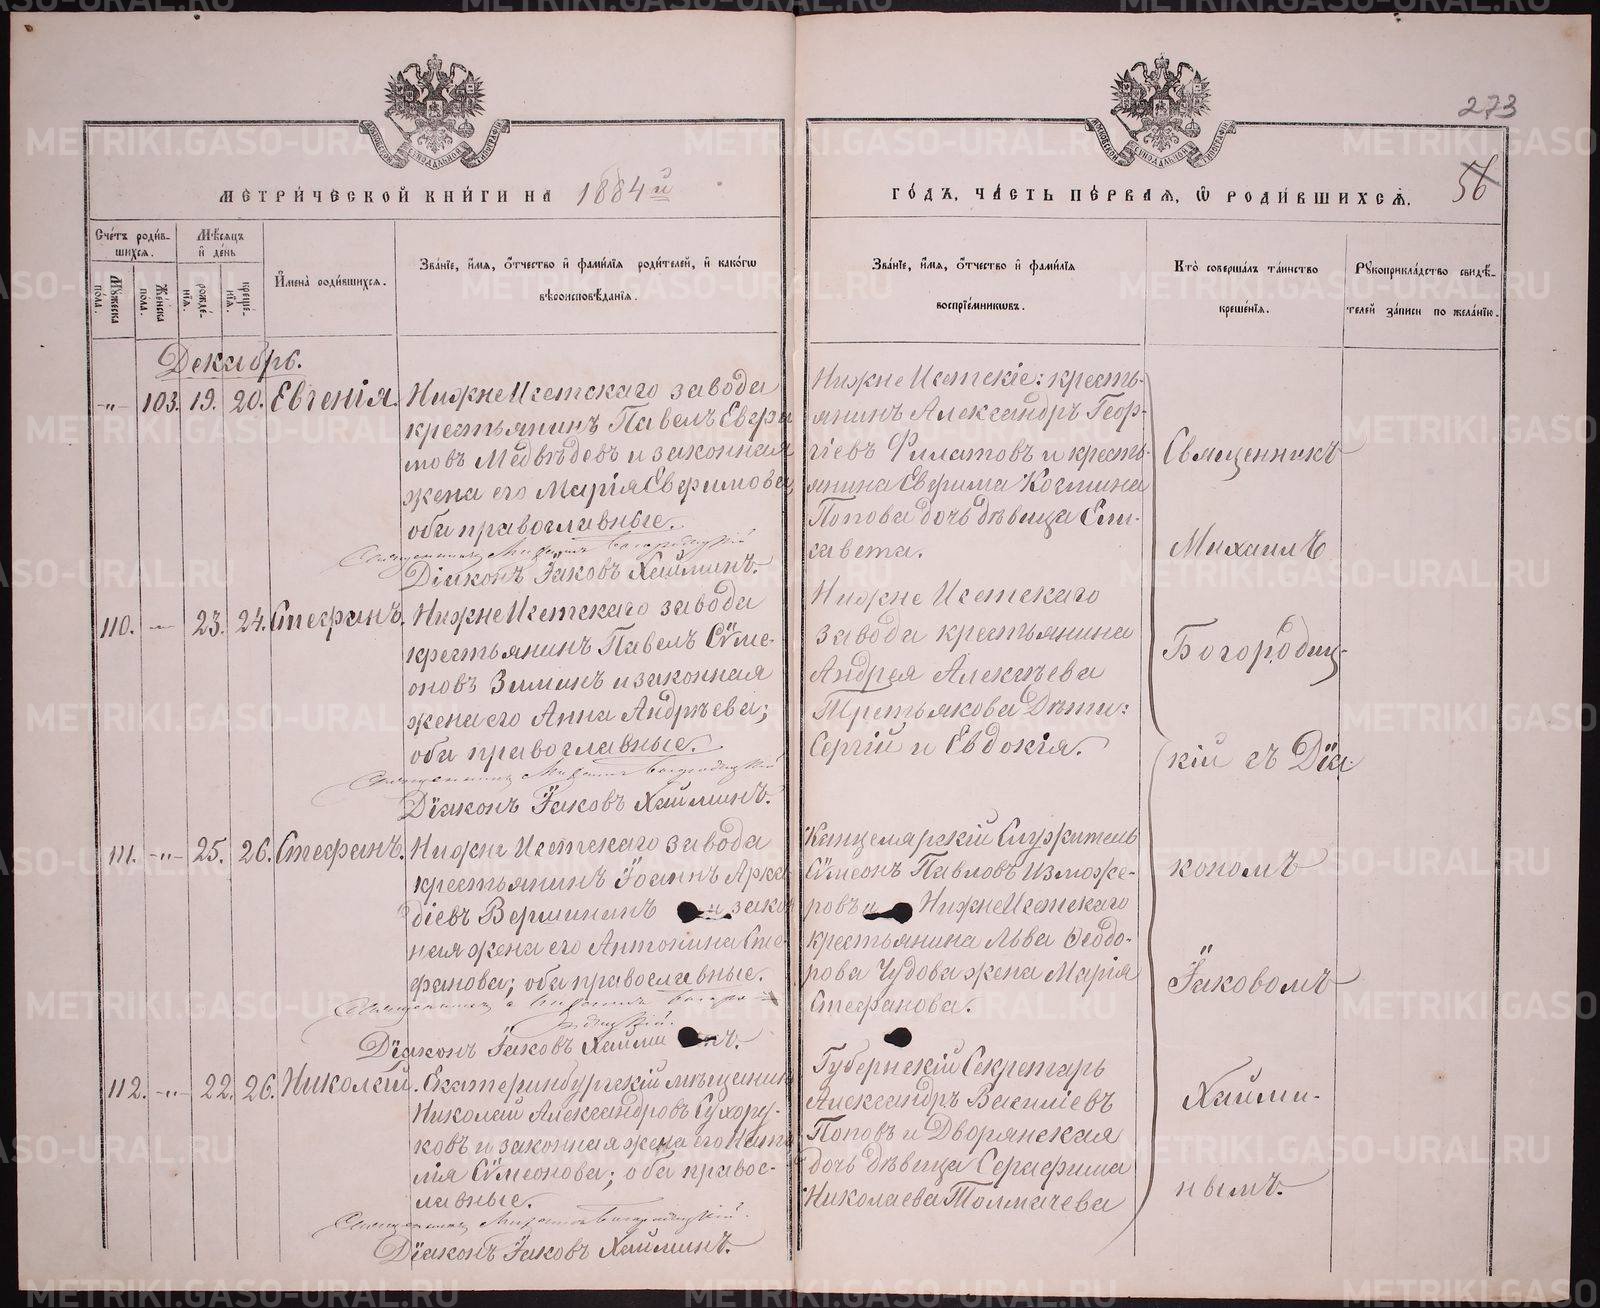 273
56
МЕТРИ́ЧЕСКОЙ КНИ́ГИ НА 1884й
ГО́ДЪ, ЧА́СТЬ ПЕ́РВАЯ, Ѽ РОДИ́ВШИХСЯ.
Сче́тъ роди́в-
шихся.
Му́жеска
по́ла.
Же́нска
по́ла.
Мѣ́сяцъ
и҆ де́нь
рожде́-
нїя.
креще́-
нїя.
И҆мена̀ роди́вшихся.
Зва́нїе, и҆́мя, ѻ҆́тчество и҆ фами́лїя роди́телей, и҆ како́гѡ
вѣроисповѣ́данїя.
Зва́нїе, и҆́мя, ѻ҆́тчество и҆ фами́лїя
воспрїе́мникѡвъ.
Кто̀ соверша́лъ та́инство
креще́нїя.
Рꙋкоприкла́дство свидѣ́-
телей за́писи по жела́нїю.
Декабрь.
-"- 103. 19. 20. Евгенія.
НижнеИсетскаго завода
крестьянинъ Павелъ Евфи
мовъ Медвѣдевъ и законная
жена его Марія Евфимова,
оба православные.
Священникъ Михаилъ Богородицкій
Діаконъ Іаковъ Хайминъ.
НижнеИсетскіе: кресть-
янинъ Александръ Геор-
гіевъ Филатовъ и кресть-
янина Евфима Космина
Попова дочь дѣвица Ели-
савета.
110. -"- 23. 24. Стефанъ.
НижнеИсетскаго завода
крестьянинъ Павелъ Сѵме-
оновъ Зиминъ и законная
жена его Анна Андреева;
оба православные.
Священникъ Михаилъ Богородицкій
Діаконъ Іаковъ Хайминъ.
Нижне Исетскаго
завода крестьянина
Андрея Алексѣева
Третьякова дѣти:
Сергій и Евдокія.
111. -"- 25. 26. Стефанъ.
Нижне Исетскаго завода
крестьянинъ Іоаннъ Арка
діевъ Вершининъ и закон
ная жена его Антонина Сте
фанова; оба православные.
Священникъ Михаилъ Богоро-
дицкій.
Діаконъ Іаковъ Хайминъ.
Канцелярскій Служитель
Сѵмеонъ Павловъ Изможе-
ровъ и НижнеИсетскаго
крестьянина Льва Ѳеодо-
рова Чудова жена Марія
Стефанова.
112. -"- 22. 26. Николай.
Екатеринбургскій мѣщанинъ
Николай Александровъ Сухору-
ковъ и законная жена его Ната
лія Сѵмеонова; оба правос-
лавные.
Священникъ Михаилъ Богородицкій.
Діаконъ Іаковъ Хайминъ.
Губернскій Секретарь
Александръ Василіевъ
Поповъ и Дворянская
дочь дѣвица Серафима
Николаева Толмачева
Священникъ
Михаилъ
Богородиц-
кій съ Діа-
кономъ
Іаковомъ
Хайми-
нымъ.
METRIKI.GASO-URAL.RU